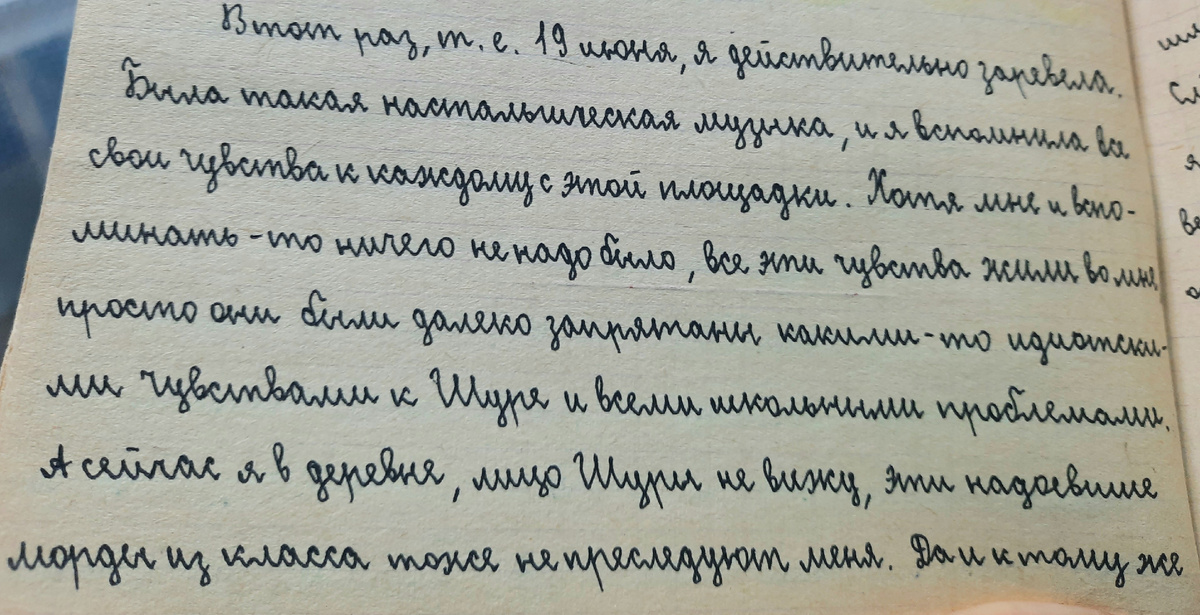 В тот раз, т. е. 19 июня, я действительно заревела.
Была такая настальгическая музыка, и я вспомнила все
свои чувства к каждому с этой площадки. Хотя мне и вспо-
минать-то ничего не надо было, все эти чувства жили во мне,
просто они были далеко запрятаны какими-то идиотски-
ми чувствами к Шуре и всеми школьными проблемами.
А сейчас я в деревне, лицо Шуры не вижу, эти надоевшие
морды из класса тоже не преследуют меня. Да и к тому же